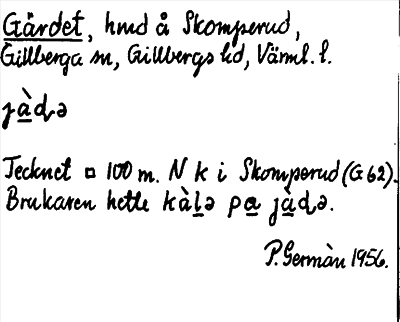 Gärdet, hmd å Skomperud,
Gillberga sn, Gillbergs hd, Värml. l.
jà̲d̲ə
Tecknet ¤ 100 m. N k i Skomperud (G 62).
Brukaren hette kàl̲ə pa̲ jà̲d̲ə.
P. Germàn 1956.